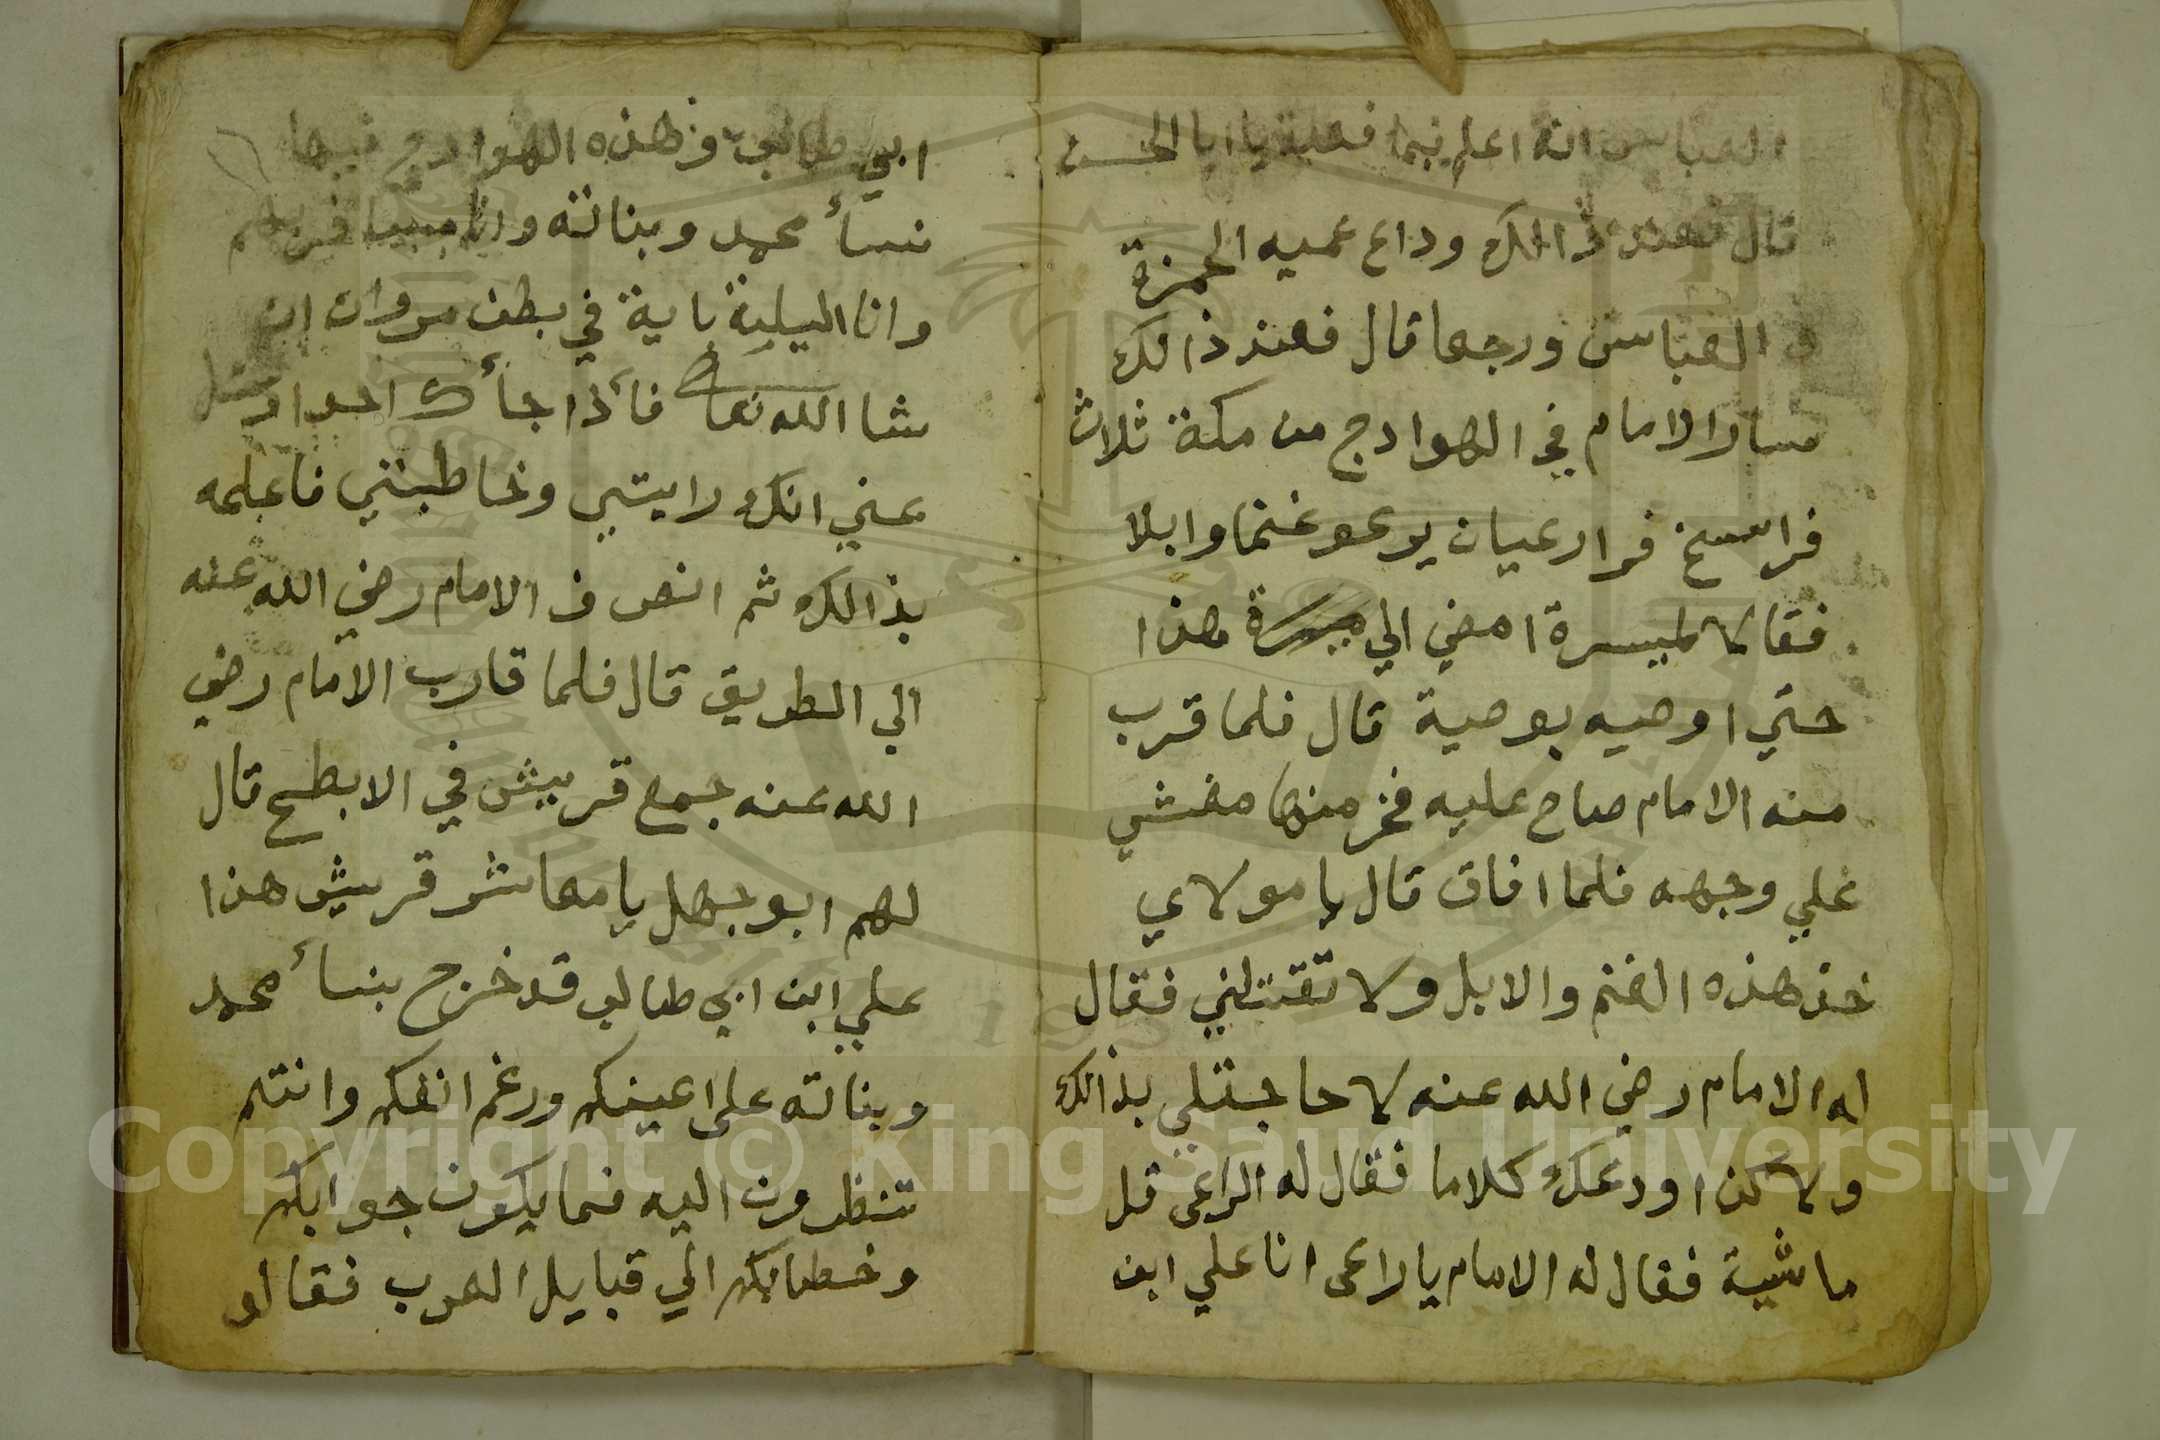 العباس انه اعلم فيما فعلة يا ابا الحسن
قال فعند ذالك وداع عميه الحمزة
و العباس ورجعا قال فعند ذالك
سار الامام في الهوادج من مكة ثلاث
فراسخ فرا رعيان يرعو غنما وابلا
فقال لميسرة امضي الي هذا
حتي اوصيه بوصية قال فلما قرب
منه الامام صاح عليه فخر منها مغشي
علي وجهه فلما افاق قال يا مولاي
خذ هذه الغنم والابل ولا تقتلني فقال
له الامام رضي الله عنه لا حاجتلي بذالك
ولاكن اودعك كلاما فقال له الراعى قل
ماشية فقال له الامام يا راعى انا علي ابن
ابي طالب وهذه الهوادج فيها
نسأ محمد وبناته
وانا اليلية باية في بطن مروان ان
شا الله تعا فأذا جأك احدا
عني انك رايتني وخاطبتني فاعلمه
بذالك ثم انصرف الامام رضي الله عنه
الي الطريق قال فلما قارب الامام رضي
الله عنه جمع قريش في الابطح قال
لهم ابو جهل يا معاشر قريش هذا
علي ابن ابي طالب قد خرج بنسأ محمد
وبناته على اعينكم ورغم انفكم وانتم
تنظرون اليه فما يكون جوابكم
وخطابكم الي قبايل العرب فقالو
Copyright © King Saud University